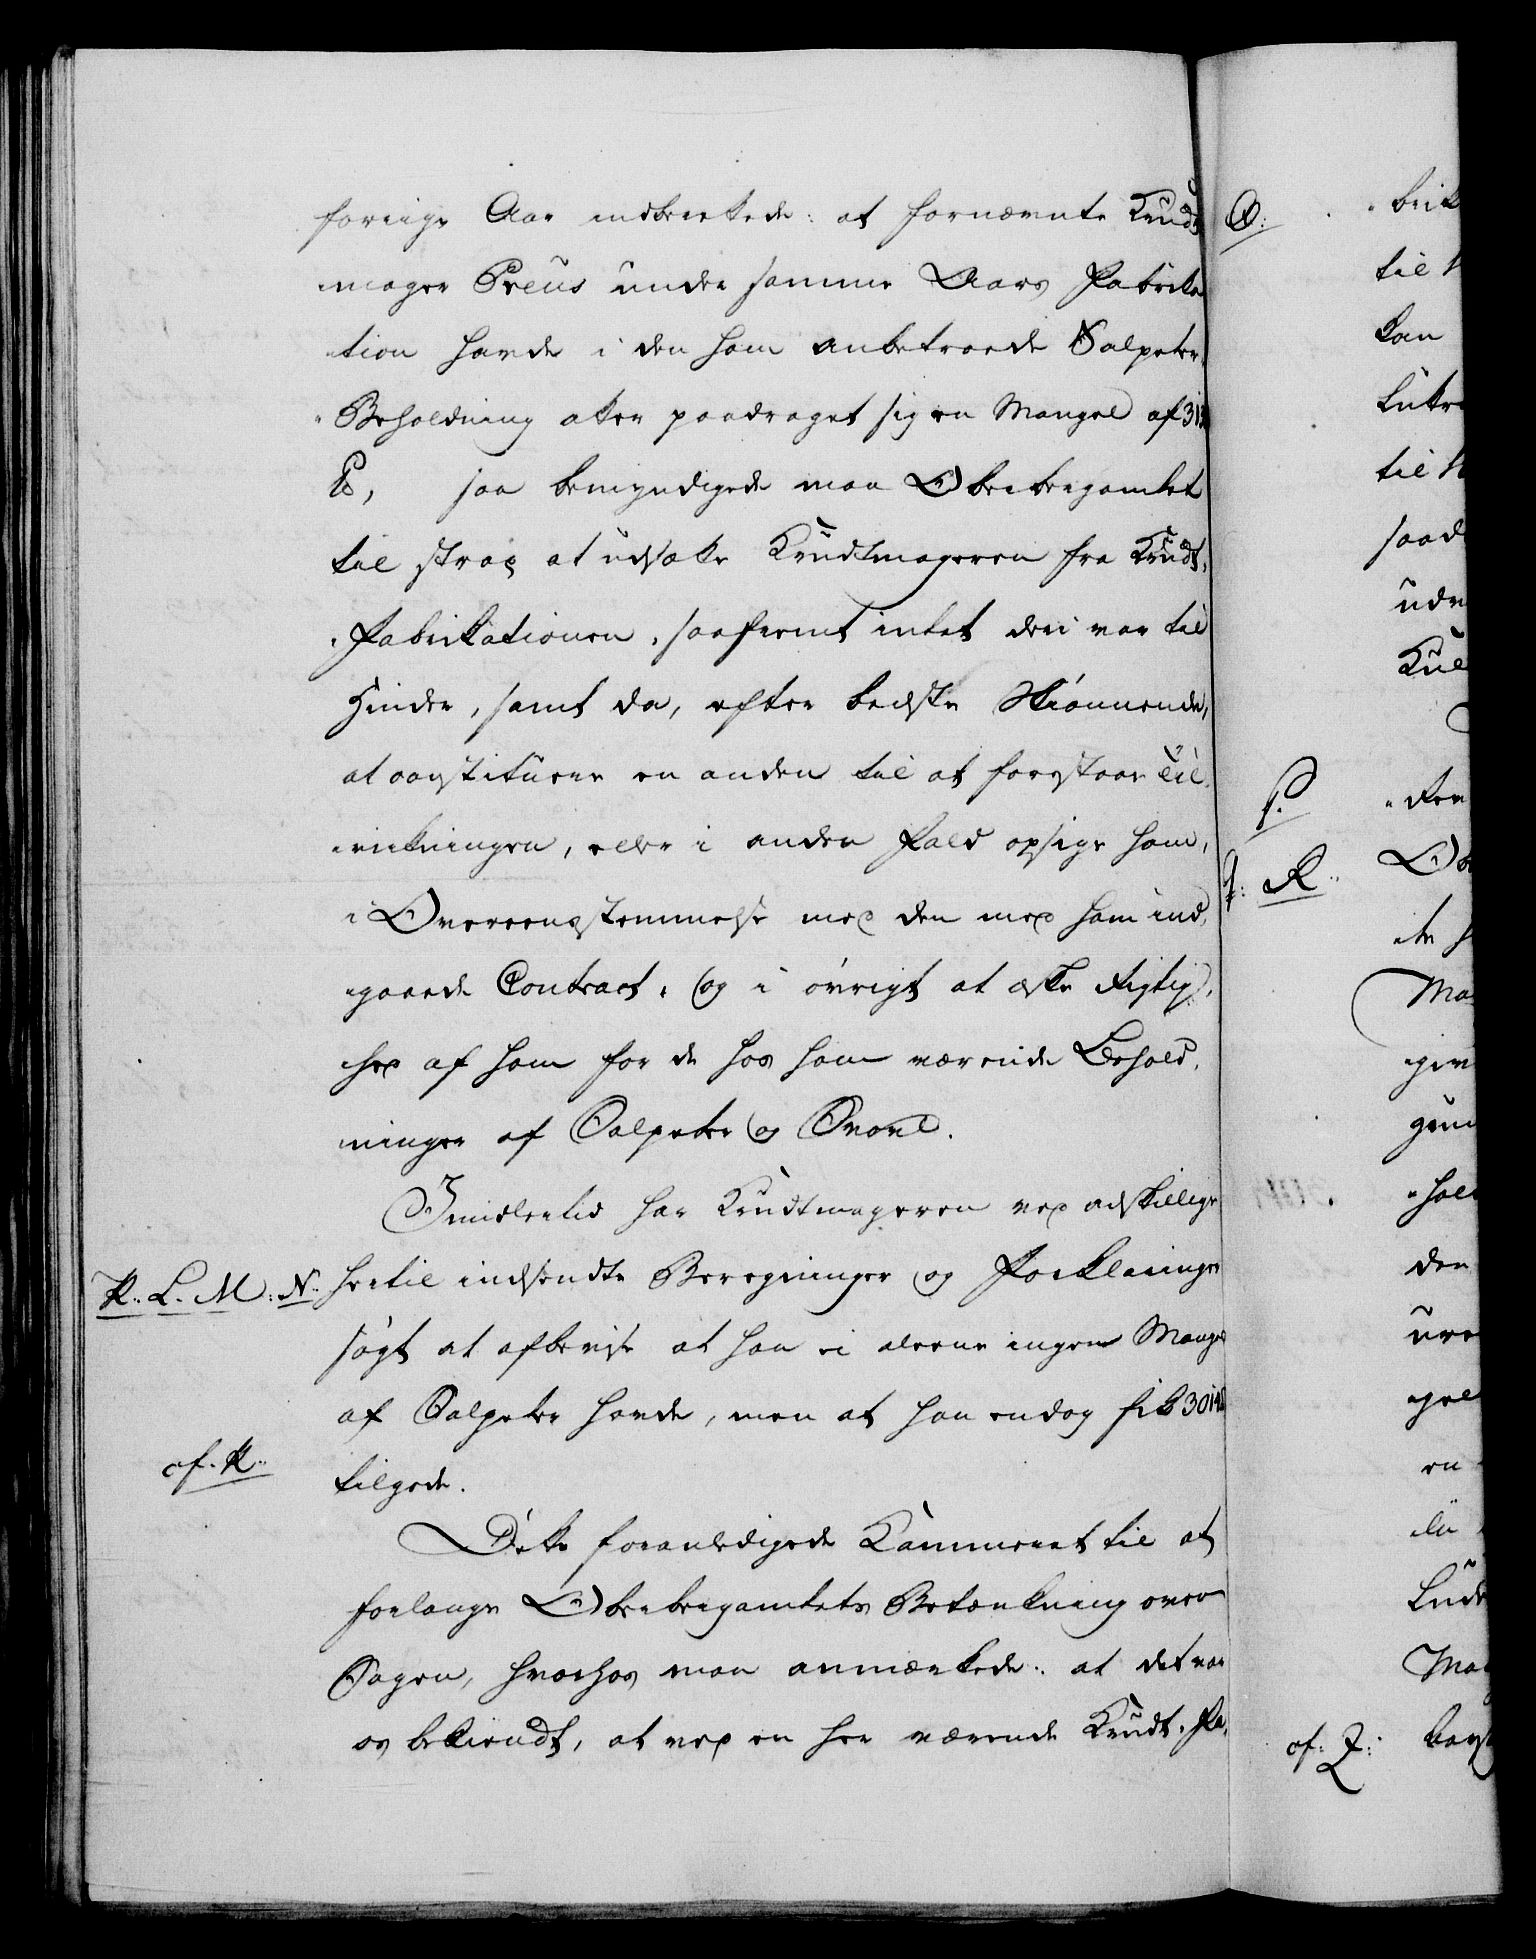 forrige Aar indberettede: at fornævnte Krudt
mager Preus under samme Aars Fabrika
tion havde i den ham anbetroede Salpeter
Beholdning atter paadraget sig en Mangel af 313
℔, saa bemyndigede man Oberbergamtet
til strax at udsætte Krudtmageren fra Krudt,
Fabrikationen, saafremt intet deri var til
Hinder, samt da, efter bedste Skiønnende,
at constituere en anden til at forestaae Til
virkningen, eller i anden Fald opsige ham,
i Overeensstemmelse med den med ham ind,
gaaede Contract, og i øvrigt at æske Rigtig,
hed af ham for de hos ham værende Behold,
ninger af Salpeter og Svovel.
Imidlertid har Krudtmageren ved adskillige
K. L. M. N. hertil indsendte Beregninger og Forklaringer
søgt at afbevise at han ei alene ingen Mangel
af Salpeter havde, men at han endog fik 301
cf. K. tilgode.
Dette foranledigede Kammeret til at
forlange Oberbergamtets Betænkning over
Sagen, hvorhos man anmærkede: at det var
os bekiendt, at ved en her værende Krudt, Fa,
O.
P.
R.
cf. Q.